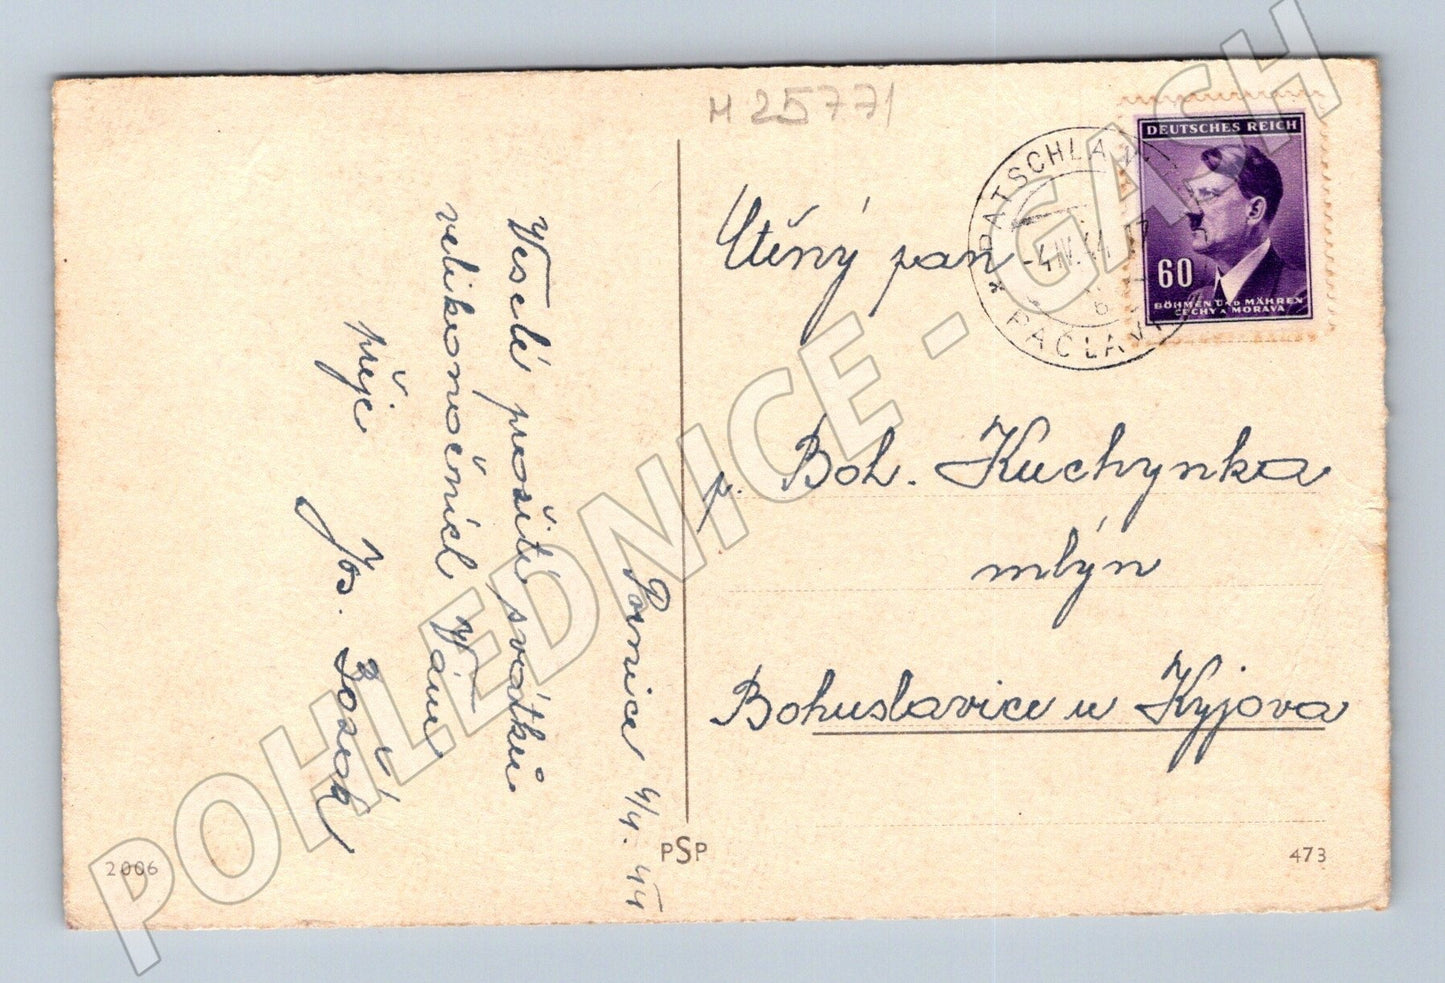 M 25771
DEUTSCHES REICH
60
BÖHMEN UND MÄHREN
ČECHY A MORAVA
PATSCHLA
-4.IV.44 17
6
PAČLAV
Ctěný pan
p. Boh. Kuchynka
mlýn
Bohuslavice u Kyjova
Pornice 4/4. 44
Veselé prožití svátků
velikonočních Vám
přeje
Jos.
2006
PSP
473
POHLEDNICE - GACH